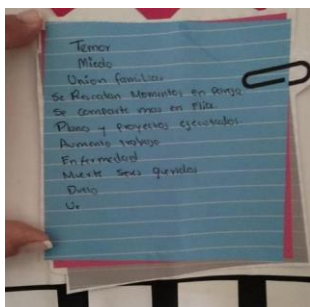 Temor
Miedo
Union familiar
Se Rescatan Momentos en Pareja
Se comparte mas en Flia.
Planes y proyectos ejecutados.
Aumento trabajo
Enfermedad
Muerte Seres queridos
Duelo